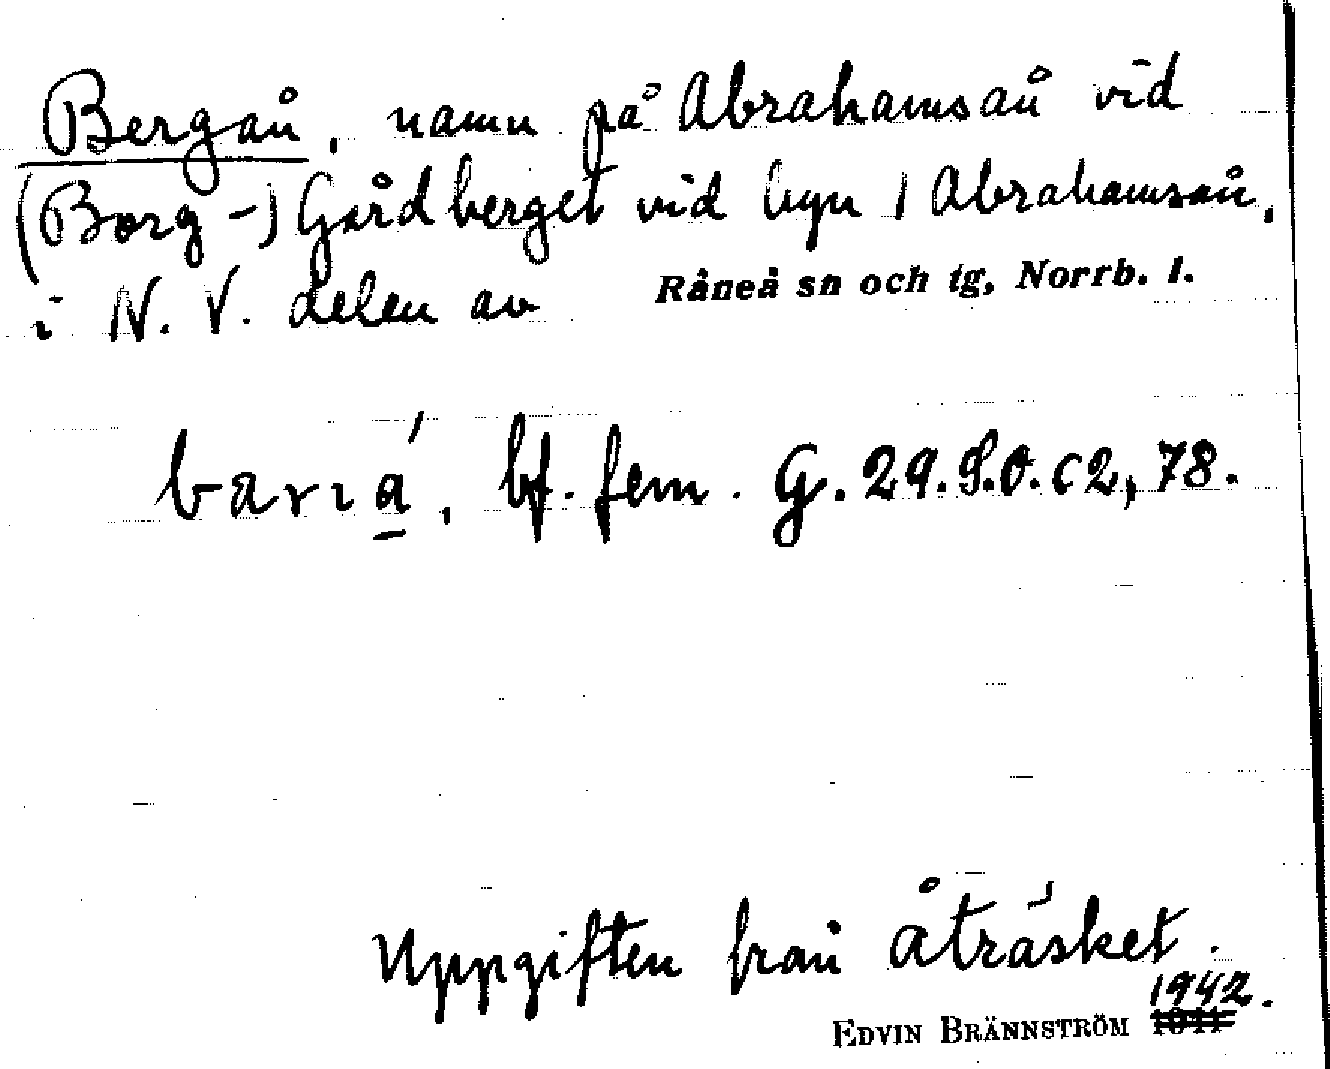 Bergån, namn på Abrahamsån vid
(Borg-) Gårdberget vid byn / Abrahamsån,
i N. V. delen av Råneå sn och tg, Norrb. l.
barıá, bf. fem. G. 29. S.O. 62, 78.
Uppgiften från Åträsket.
1942.
EDVIN BRÄNNSTRÖM 1941